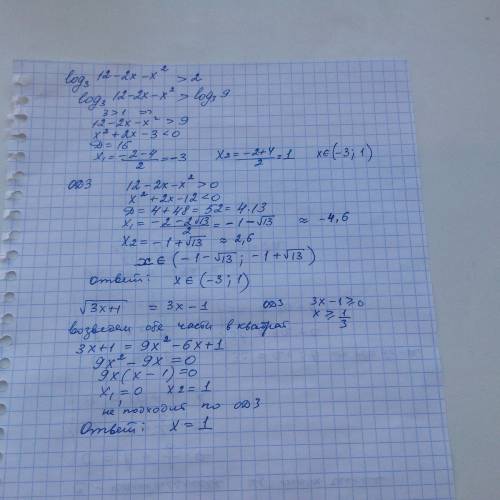 log₃ 12-2x-x² > 2
log₃ 12-2x-x² > log₃ 9
3>1 =>
12-2x-x² > 9
x²+2x-3<0
D = 16
x₁ = (-2-4)/2 = -3 x2 = (-2+4)/2 = 1 x∈(-3; 1)
ОДЗ 12-2x-x²>0
x²+2x-12<0
D = 4+48 = 52 = 4·13
x₁ = (-2-2√13)/2 = -1-√13 ≈ -4,6
x2 = -1+√13 ≈ 2,6
x∈(-1-√13; -1+√13)
ответ: x∈(-3; 1)
√3x+1 = 3x-1 ОДЗ 3x-1≥0
x≥1/3
возведем обе части в квадрат
3x+1 = 9x²-6x+1
9x²-9x=0
9x(x-1)=0
x₁=0 x2=1
не подходит по ОДЗ
Ответ: x = 1